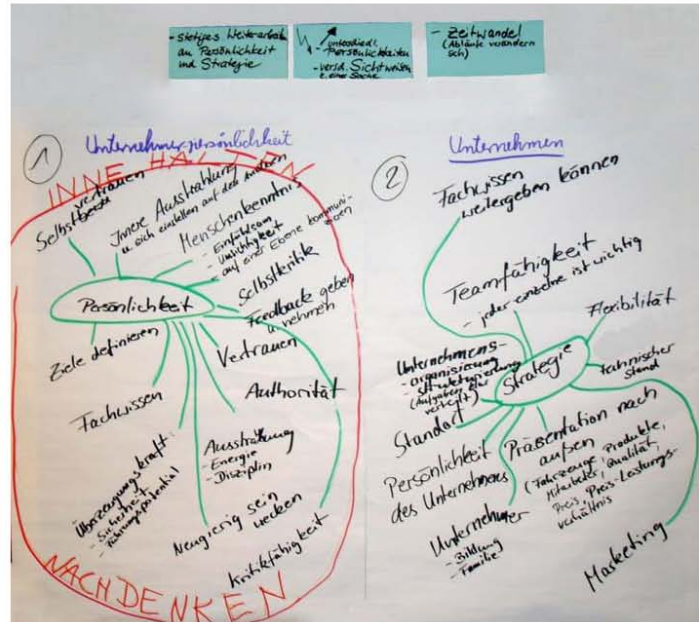 - stetiges Weiterarbeiten
an Persönlichkeit
und Strategie
- unterschiedl.
Persönlichkeiten
- versch. Sichtweisen
z. einer Sache
- Zeitwandel
(Abläufe verändern
sich)
1
Unternehmerpersönlichkeit
INNE HALTEN
Selbstvertrauen
Innere Ausstrahlung
u. sich einstellen auf den anderen
Menschenkenntnis
- Einfühlsam
- Umsichtigkeit
- auf einer Ebene kommunizieren
Selbstkritik
Feedback geben
u. nehmen
Persönlichkeit
Ziele definieren
Vertrauen
Fachwissen
Authorität
Ausstrahlung
- Energie
- Disziplin
Überzeugungskraft:
- Sicherheit
- Führungspotential
Neugierig sein
wecken
Kritikfähigkeit
NACHDENKEN
2
Unternehmen
Fachwissen
weitergeben können
Teamfähigkeit
- jeder einzelne ist wichtig
Flexibilität
Unternehmens-
- organisierung
- strukturierung
(Aufgaben klar
verteilt)
Strategie
technischer
Stand
Standort
Persönlichkeit
des Unternehmens
Präsentation nach
außen
(Fahrzeuge, Produkte,
Mitarbeiter, Qualität,
Preis, Preis-Leistungs-
verhältnis
Unternehmer
- Bildung
- Familie
Marketing